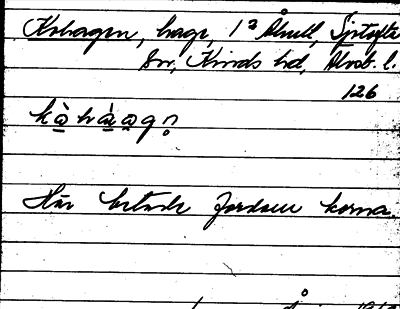 Kohagen, hage, 1ª Åhult, Sjötofta
Sn, Kinds hd, Älvsb. l.
126
kòhàag?
Här betade fordom korna.